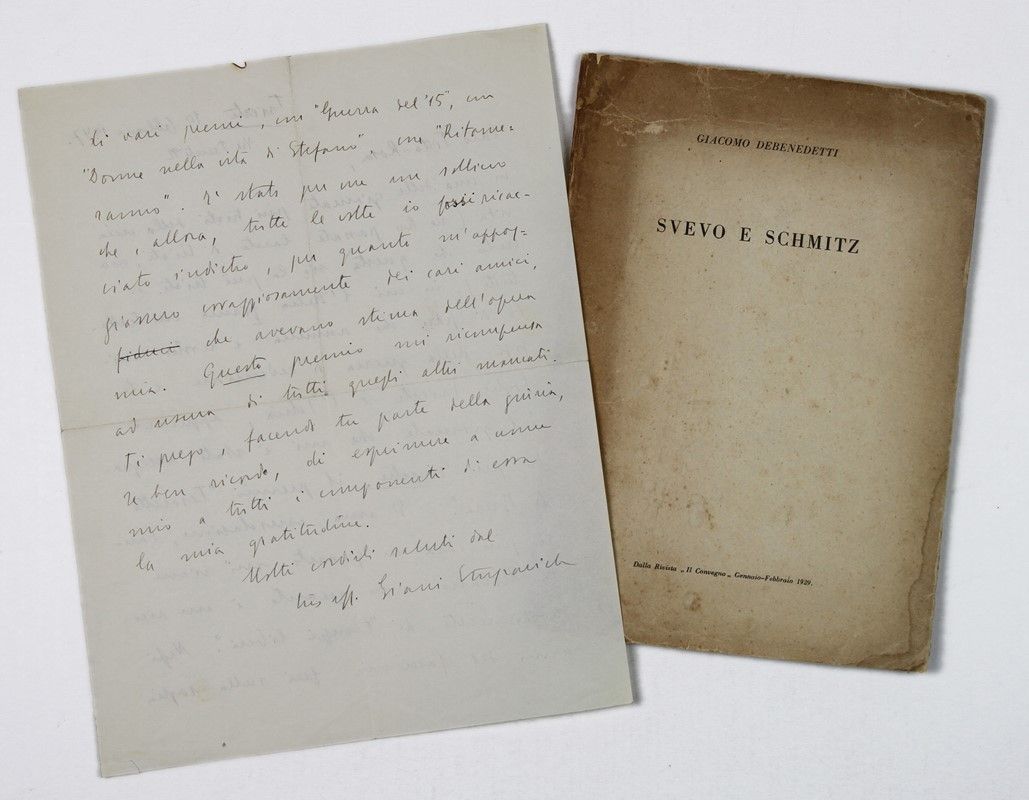 "Ci vari premi, con "Guerra del '15", con
"Donne nella vita di Stefano", con "Ritorne-
ranno". È stato per me un sollievo
che, allora, tutte le volte io fossi ricac-
ciato indietro, per quanto m'appog-
giassero coraggiosamente dei cari amici,
fiduci che avevano stima dell'opera
mia. Questo premio mi ricompensa
ad usura di tutti quegli altri mancati.
Ti prego, facendo tu parte della giuria,
se ben ricordo, di esprimere a nome
mio a tutti i componenti di essa
la mia gratitudine.
Molti cordiali saluti dal
tuo aff. Giani Stuparich
GIACOMO DEBENEDETTI
SVEVO E SCHMITZ
Dalla Rivista „Il Convegno„ Gennaio-Febbraio 1929.